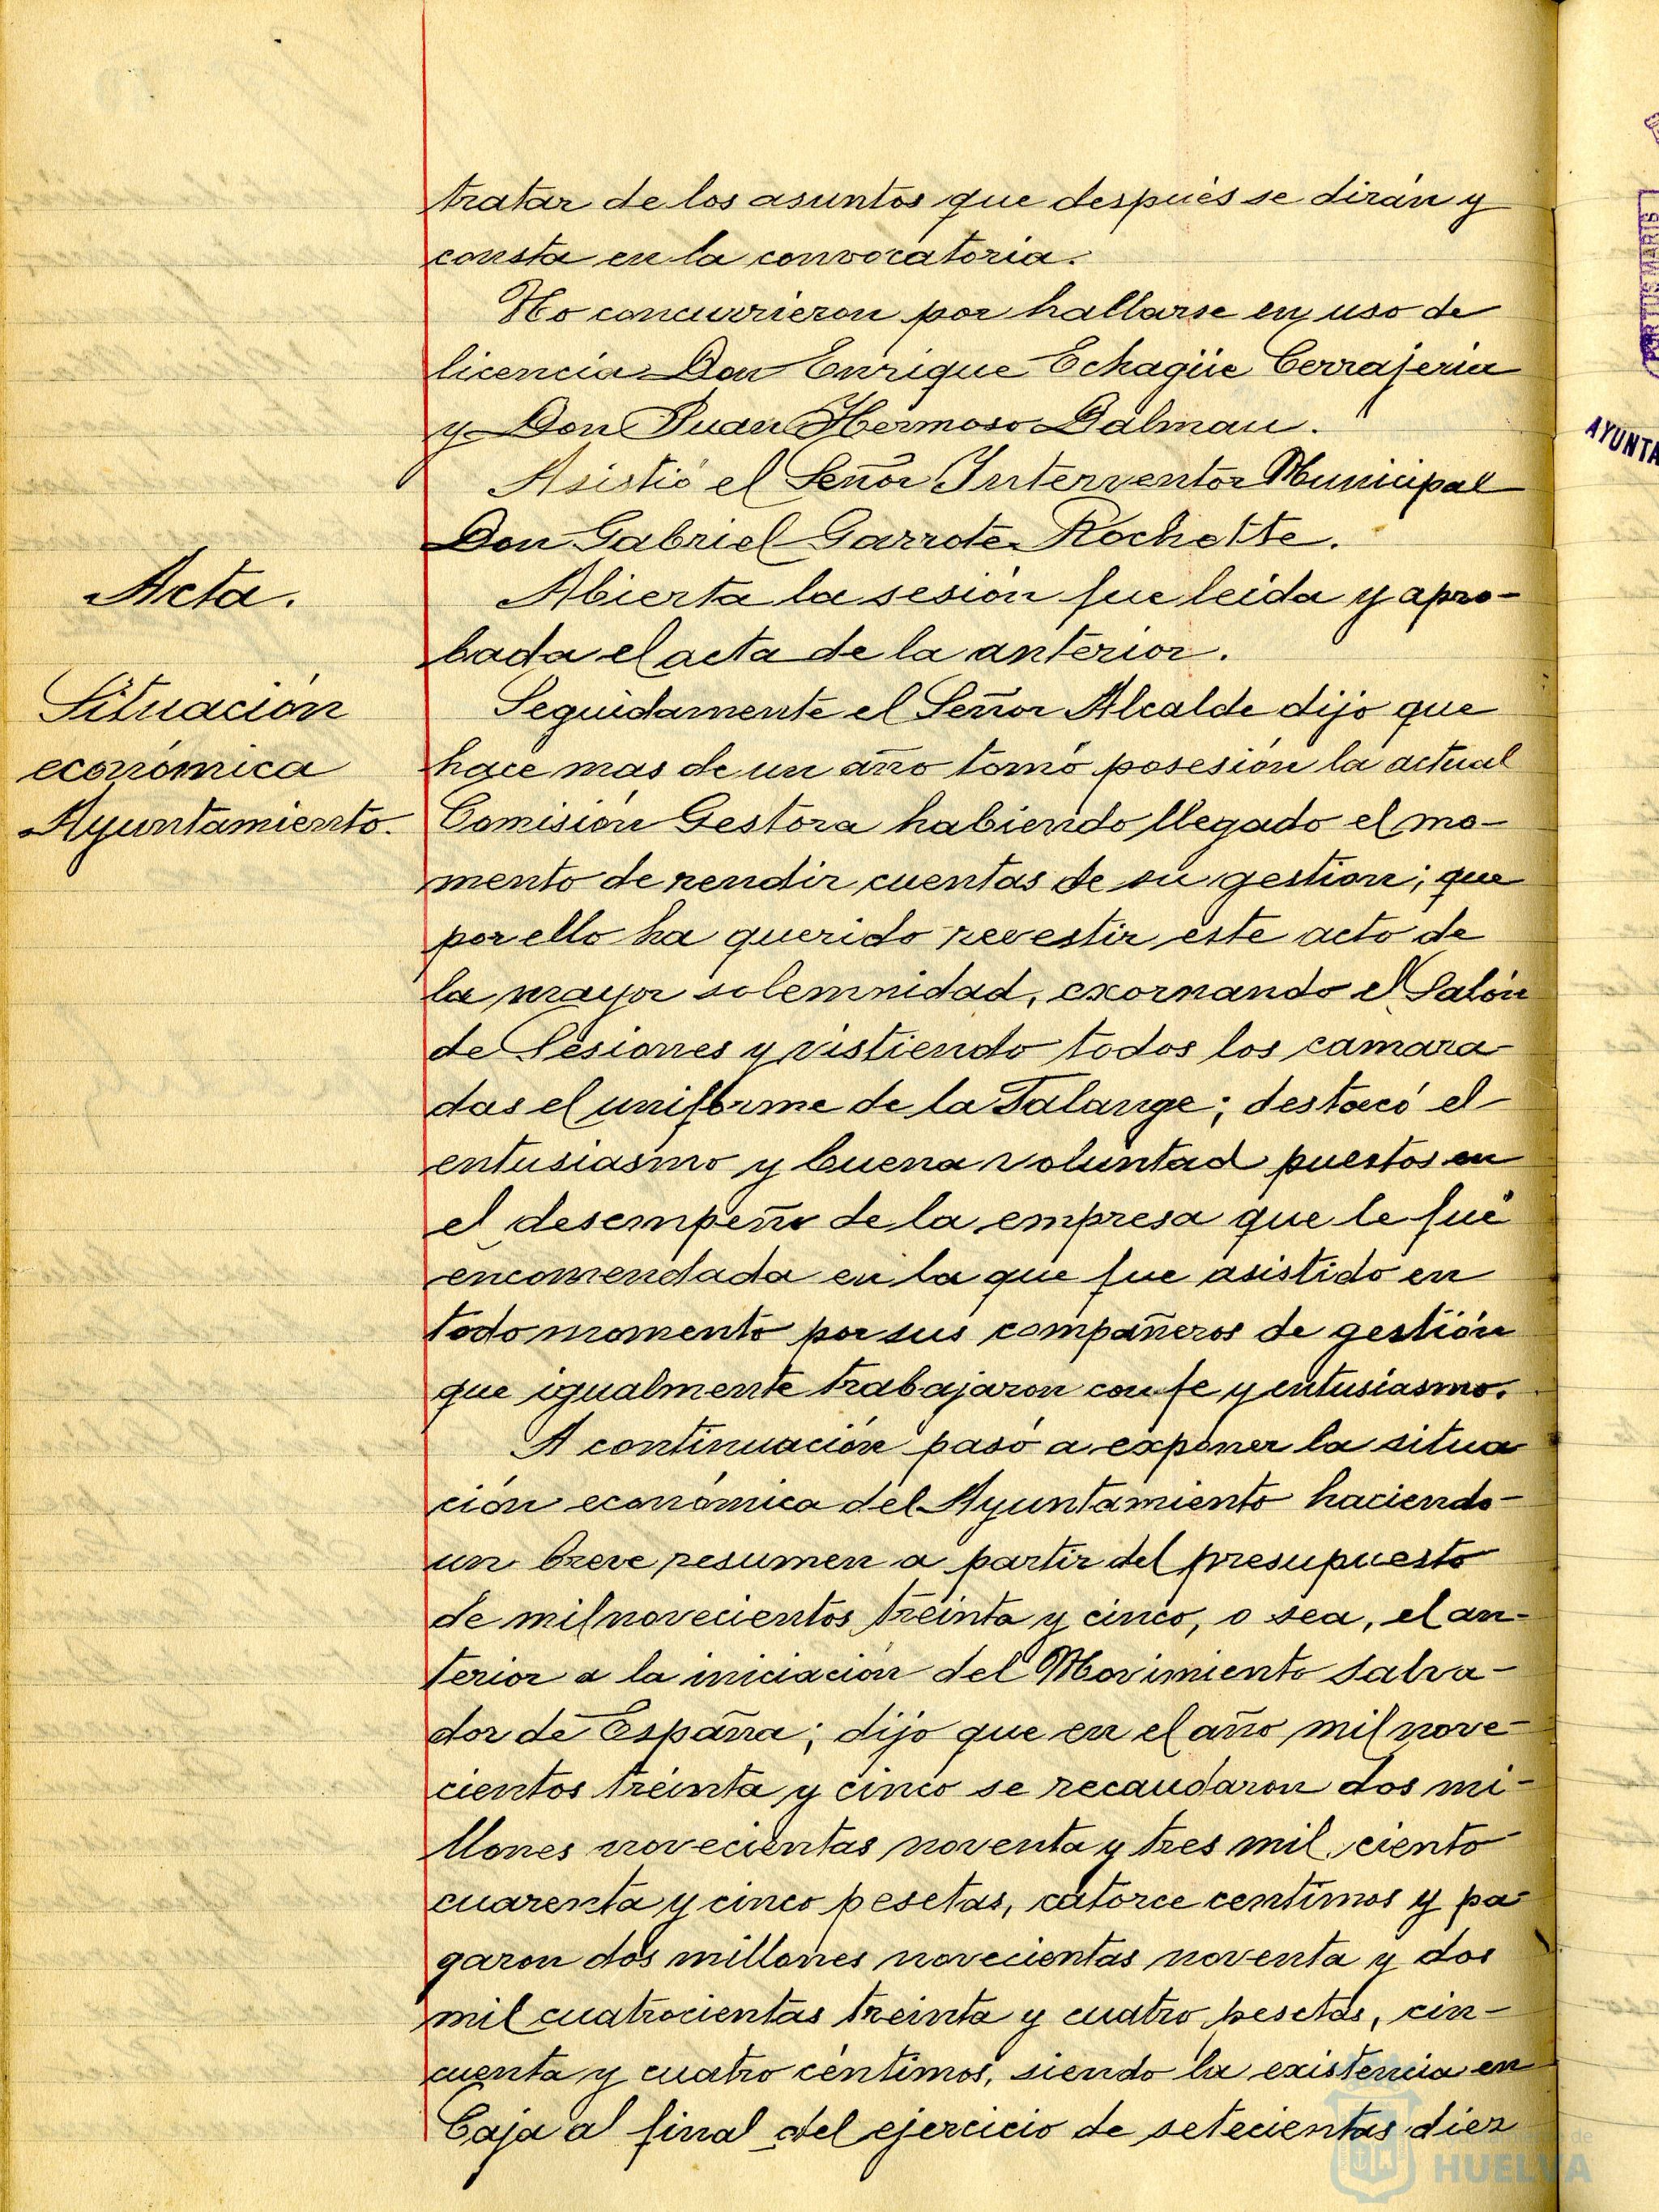 tratar de los asuntos que después se dirán y
consta en la convocatoria.
No concurrieron por hallarse en uso de
licencia Don Enrique Echagüe Cerrajeria
y Don Juan Hermoso Dalmau.
Asistió el Señor Interventor Municipal
Don Gabriel Garrote Rochette.
Acta.
Abierta la sesión fue leida y apro-
bada el acta de la anterior.
Situación
económica
Ayuntamiento.
Seguidamente el Señor Alcalde dijo que
hace mas de un año tomó posesión la actual
Comisión Gestora habiendo llegado el mo-
mento de rendir cuentas de su gestion; que
por ello ha querido revestir este acto de
la mayor solemnidad, exornando el Salón
de Sesiones y vistiendo todos los camara
das el uniforme de la Falange; destacó el
entusiasmo y buena voluntad puestos en
el desempeño de la empresa que le fué
encomendada en la que fue asistido en
todo momento por sus compañeros de gestión
que igualmente trabajaron con fe y entusiasmo.
A continuación pasó a exponer la situa
ción económica del Ayuntamiento haciendo
un breve resumen a partir del presupuesto
de mil novecientos treinta y cinco, o sea, el an-
terior a la iniciación del Movimiento salva-
dor de España; dijo que en el año mil nove-
cientos treinta y cinco se recaudaron dos mi-
llones novecientas noventa y tres mil ciento
cuarenta y cinco pesetas, catorce centimos y pa-
garon dos millones novecientas noventa y dos
mil cuatrocientas treinta y cuatro pesetas, cin-
cuenta y cuatro céntimos, siendo la existencia en
Caja al final del ejercicio de setecientas diez
PORTUS MARIS
AYUNTA
HUELVA